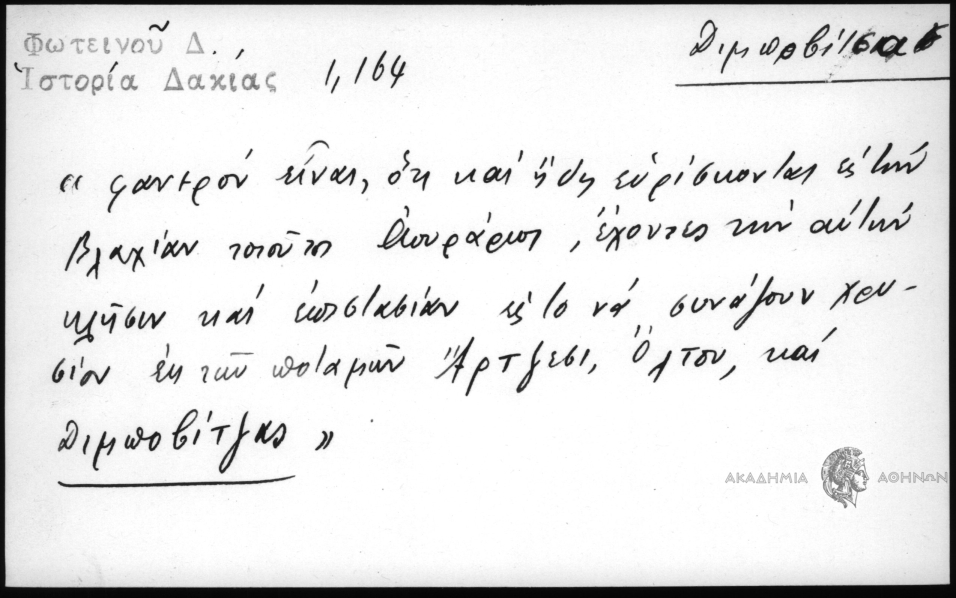 Φωτεινοῦ Δ.
Ἱστορία Δακίας
1,164
Διμποβίτσας
« φανερόν εἶναι, ὅτι καί ἤδη εὑρίσκονται εἰς τήν
Βλαχίαν τοιοῦτοι , ἔχοντες τήν αὐτήν
κλῆσιν καί ἐπιστασίαν εἰς το νά συνάζουν χρυ-
σίον ἐκ τῶν ποταμῶν Ἄρτζεσι, Ὄλτου, καί
Διμποβίτζας »
ΑΚΑΔΗΜΙΑ ΑΘΗΝΩΝ